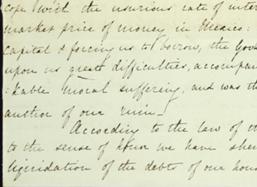 cope with the usurious rate of inter
market price of money in Mexico:
Capital & forcing us to borrow, the Gov
upon us great difficulties, accompan
:kable moral suffering, and was th
of our ruin_!
According to the law of
to the sense of honor we have she
liquidation of the debts of our hous